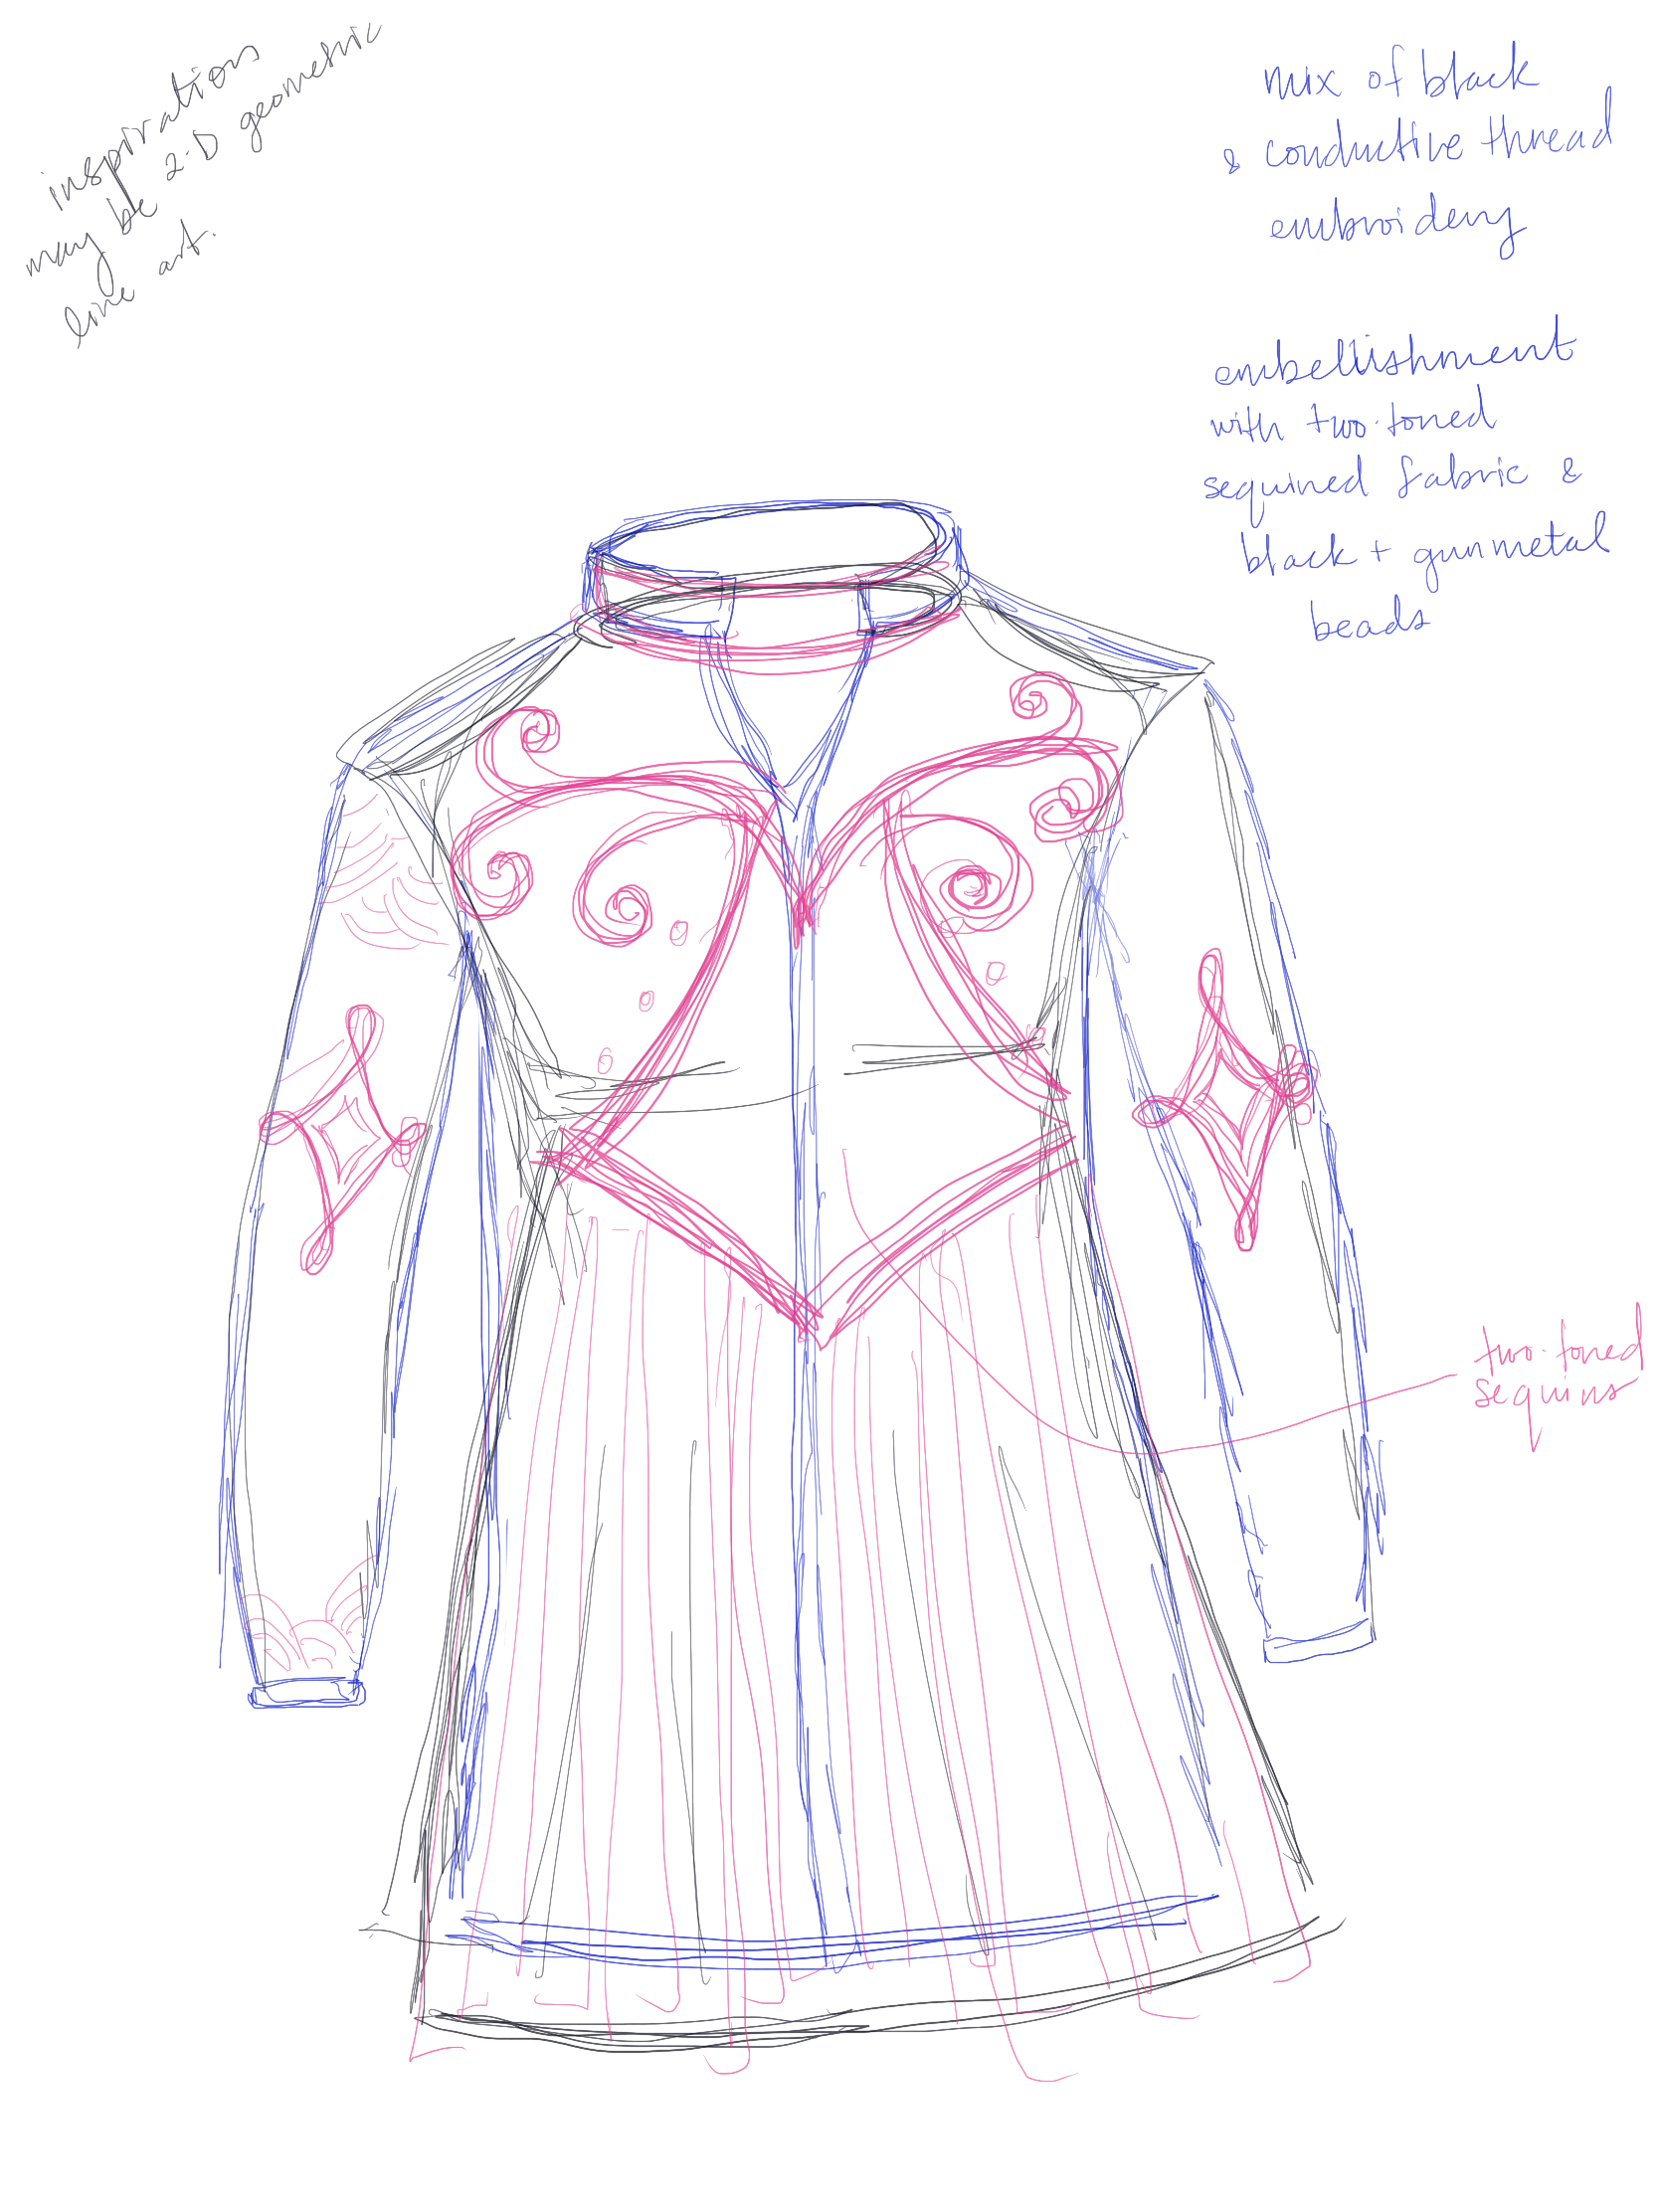 inspirations
may be 2-D geometric
line art.
mix of black
& conductive thread
embroidery
embellishment
with two-toned
sequined fabric &
black + gunmetal
beads
two-toned
sequins